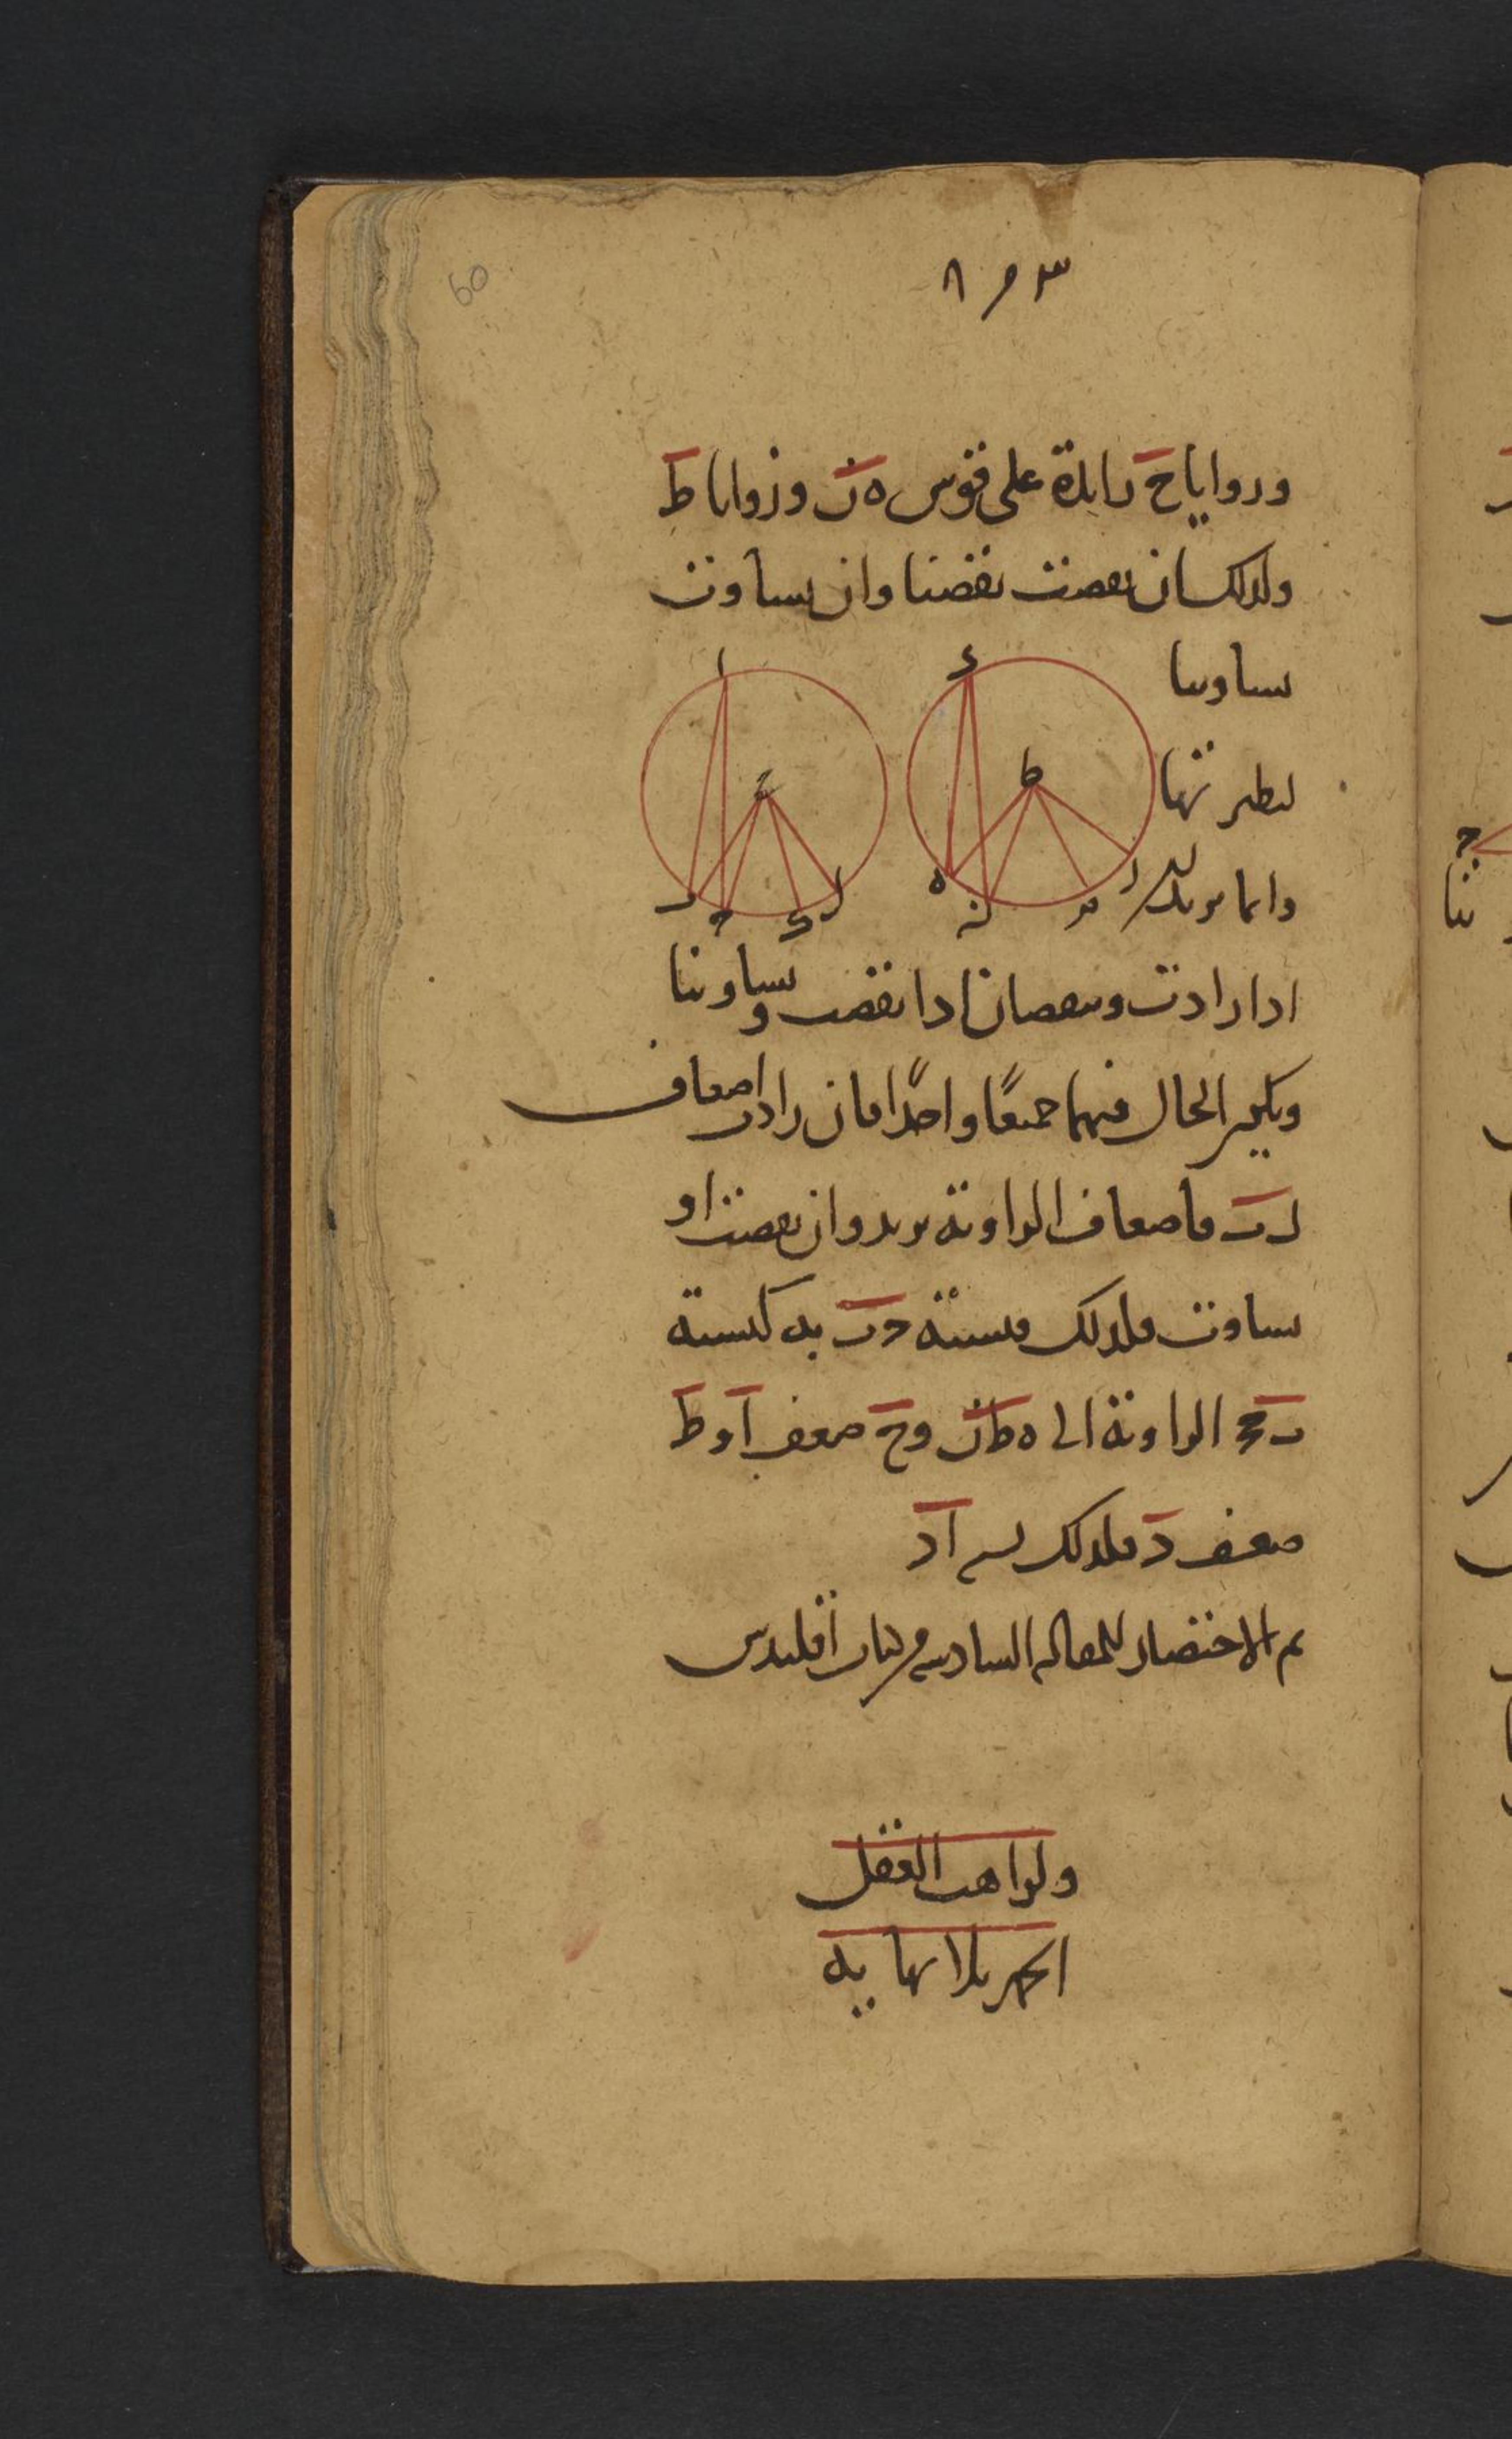 60
وزوايا ح زايدة على قوس ه ز وزوايا ط
ولذلك ان نقصت نقصتا وان ساوت
ساوتا
ا
ء
ح
ط
ب
ج
ك
ل
ه
ز
م
ن
وانما يزيدان
اذا زادت وينقصان اذا نقصت ويساوتا
الحال فيهما جميعا واحدا فان زادت اضعاف
فاضعاف الزاوية يزيد وان نقصت او
ساوت فلذلك فنسبة ح ب به كنسبة
ب ح ح الزاوية الى ه ط ز و ح ضعف ا و ط
ضعف د فلذلك ا د
تم الاختصار للمقالة السادسة من كتاب اقليدس
ولواهب العقل
الحمد بلا نهاية